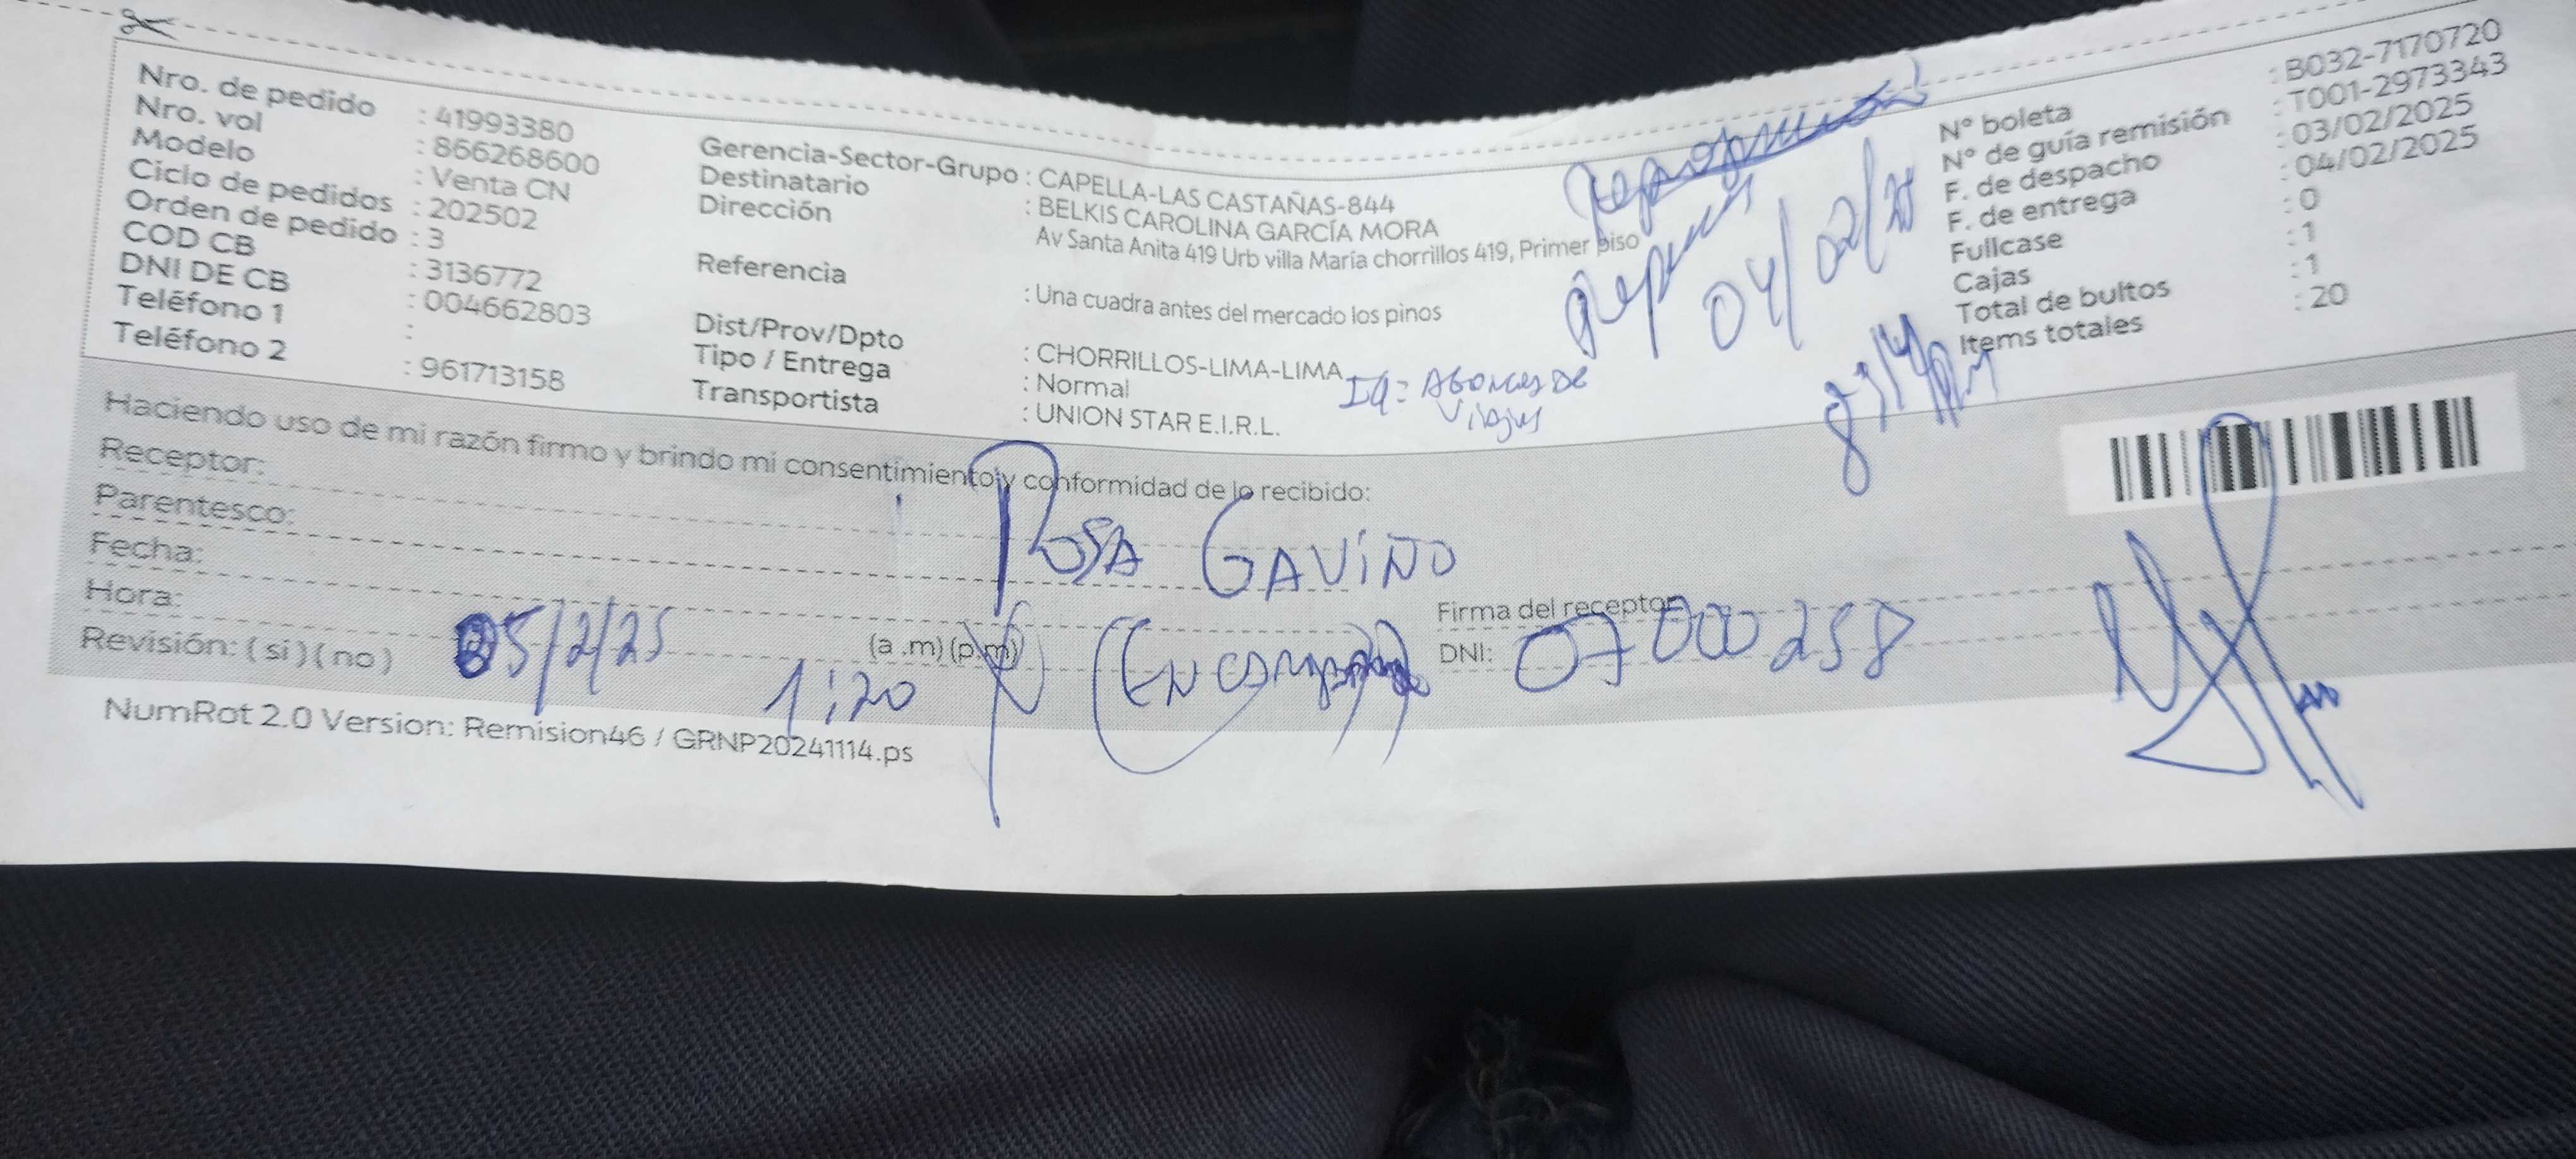 Nro. de pedido : 41993380
Nro. vol : 866268600
Modelo : Venta CN
Ciclo de pedidos : 202502
Orden de pedido : 3
COD CB : 3136772
DNI DE CB : 004662803
Teléfono 1 :
Teléfono 2 : 961713158
Gerencia-Sector-Grupo : CAPELLA-LAS CASTAÑAS-844
Destinatario : BELKIS CAROLINA GARCÍA MORA
Dirección : Av Santa Anita 419 Urb villa María chorrillos 419, Primer piso
Referencia : Una cuadra antes del mercado los pinos
Dist/Prov/Dpto : CHORRILLOS-LIMA-LIMA
Tipo / Entrega : Normal
Transportista : UNION STAR E.I.R.L.
04/02/25
Viajes
N° boleta : B032-7170720
N° de guía remisión : T001-2973343
F. de despacho : 03/02/2025
F. de entrega : 04/02/2025
Fullcase : 0
Cajas : 1
Total de bultos : 1
Items totales : 20
Haciendo uso de mi razón firmo y brindo mi consentimiento y conformidad de lo recibido:
Receptor: ROSA GAVINO
Parentesco:
Fecha: 05/2/25
Hora: 1:20 (a .m) (p.m)
Revisión: ( si ) ( no )
Firma del receptor
DNI: 07000258
NumRot 2.0 Version: Remision46 / GRNP20241114.ps